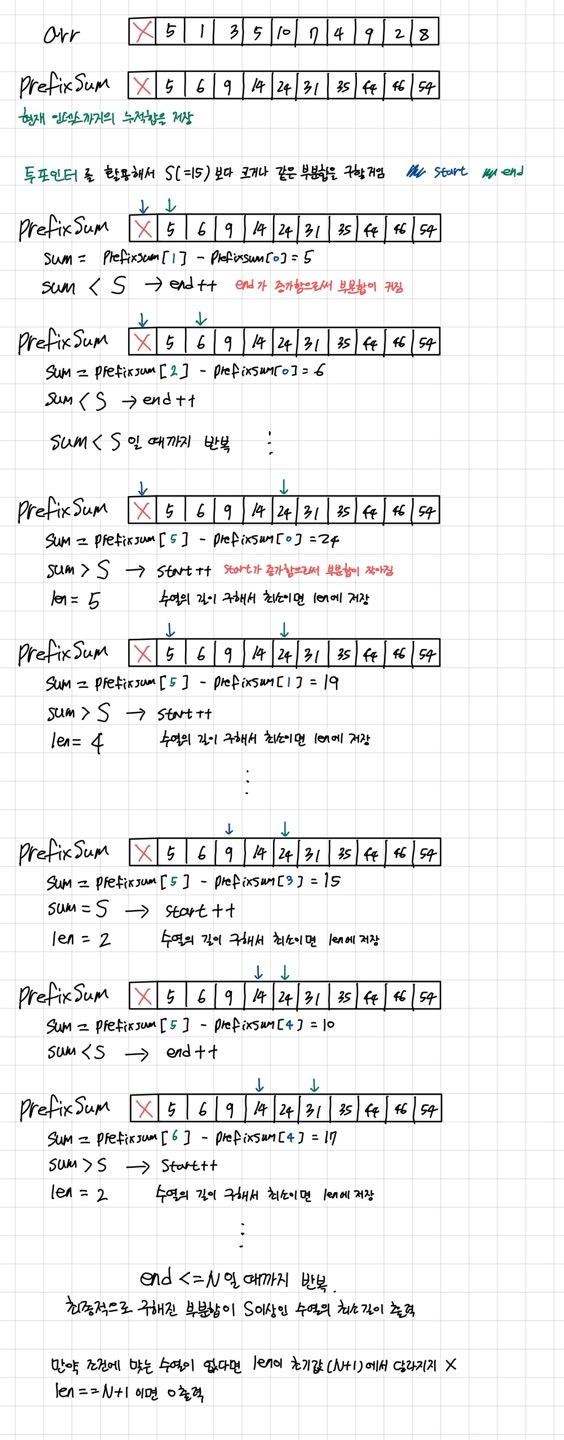 arr X 5 1 3 5 10 7 4 9 2 8
PrefixSum X 5 6 9 14 24 31 35 44 46 54
현재 인덱스까지의 누적합을 저장
투포인터를 활용해서 S(=15)보다 크거나 같은 부분합을 구할거임 start end
PrefixSum X 5 6 9 14 24 31 35 44 46 54
sum = Prefixsum[1] - Prefixsum[0] = 5
sum < S → end++ end가 증가함으로써 부분합이 커짐
PrefixSum X 5 6 9 14 24 31 35 44 46 54
sum = Prefixsum[2] - Prefixsum[0] = 6
sum < S → end++
sum < S 일 때까지 반복
PrefixSum X 5 6 9 14 24 31 35 44 46 54
sum = Prefixsum[5] - Prefixsum[0] = 24
sum > S → start++ start가 증가함으로써 부분합이 작아짐
len = 5 수열의 길이 구해서 최소이면 len에 저장
PrefixSum X 5 6 9 14 24 31 35 44 46 54
sum = Prefixsum[5] - Prefixsum[1] = 19
sum > S → start++
len = 4 수열의 길이 구해서 최소이면 len에 저장
PrefixSum X 5 6 9 14 24 31 35 44 46 54
sum = Prefixsum[5] - Prefixsum[3] = 15
sum = S → start++
len = 2 수열의 길이 구해서 최소이면 len에 저장
PrefixSum X 5 6 9 14 24 31 35 44 46 54
sum = Prefixsum[5] - Prefixsum[4] = 10
sum < S → end++
PrefixSum X 5 6 9 14 24 31 35 44 46 54
sum = Prefixsum[6] - Prefixsum[4] = 17
sum > S → Start++
len = 2 수열의 길이 구해서 최소이면 len에 저장
end <= N 일 때까지 반복.
최종적으로 구해진 부분합이 S이상인 수열의 최소길이 출력
만약 조건에 맞는 수열이 없다면 len이 초기값(N+1)에서 달라지지 X
len == N+1 이면 0 출력